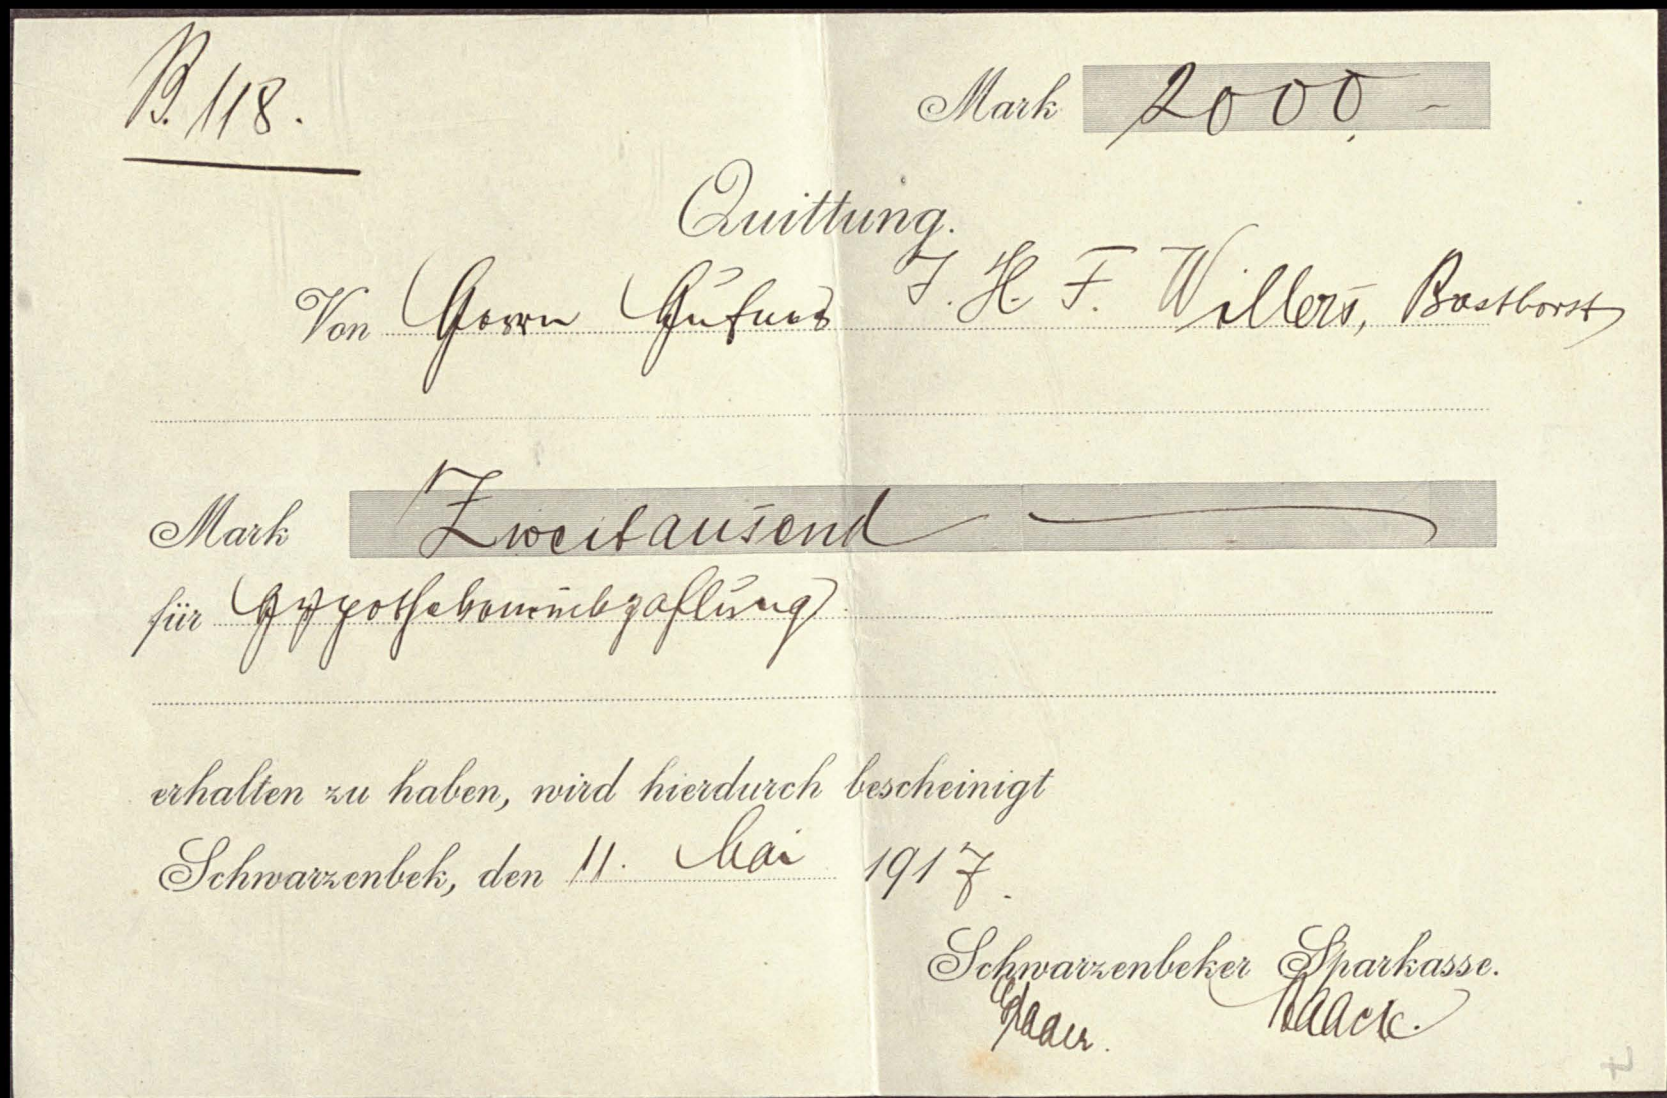 B. 118.
Mark 2000.-
Quittung.
Von Herrn Hufner J. H. F. Willers, Basthorst
Mark Zweitausend
für Hypothekenrückzahlung
erhalten zu haben, wird hierdurch bescheinigt
Schwarzenbek, den 11. Mai 1917.
Schwarzenbeker Sparkasse.